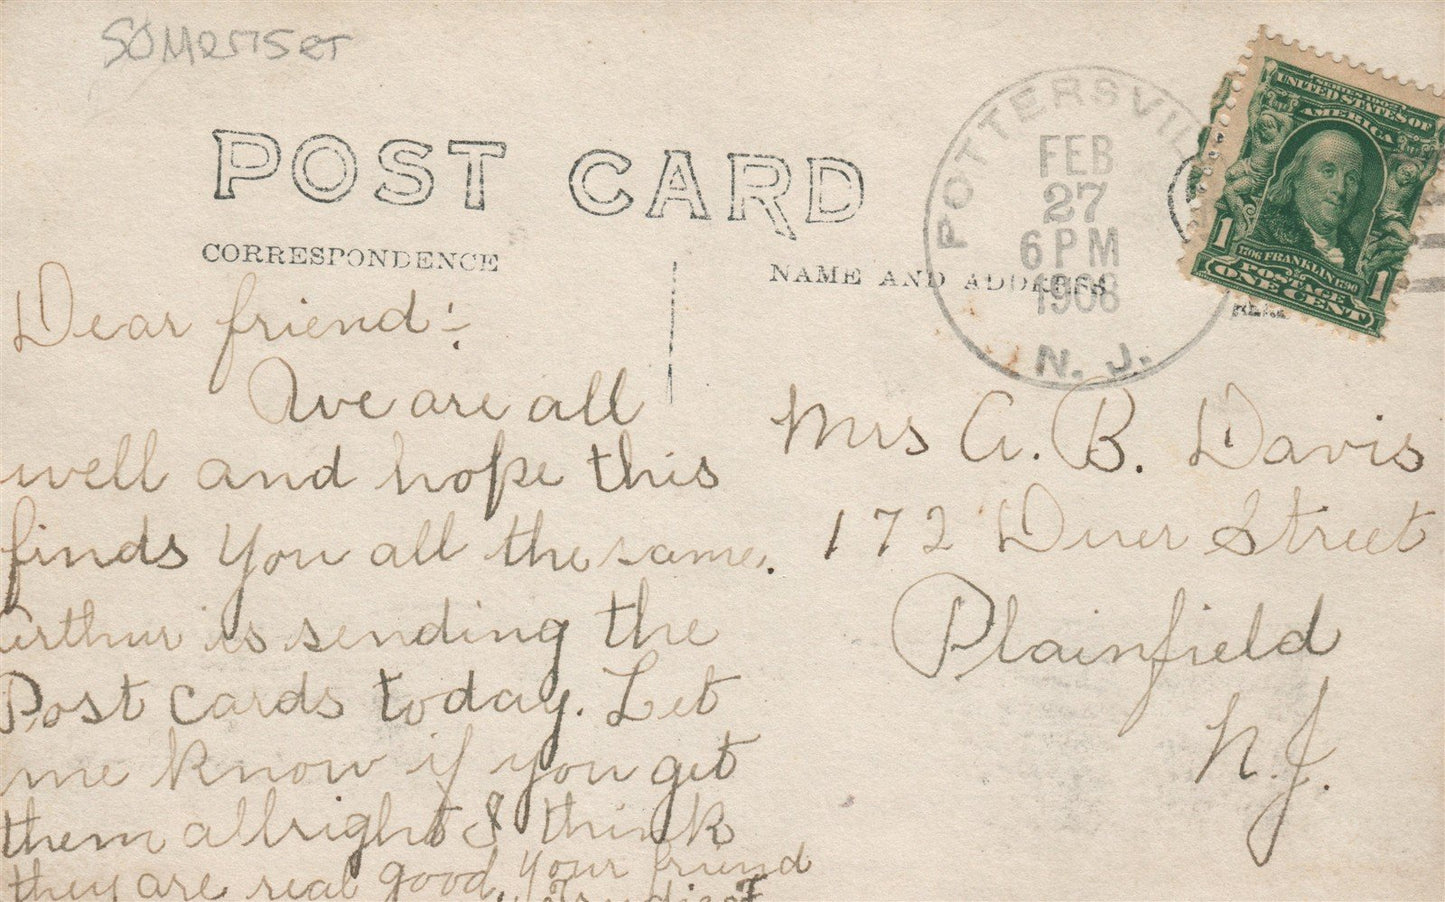 SOMERSET
POST CARD
CORRESPONDENCE
NAME AND ADDRESS
POTTERSVIL
FEB
27
6 PM
1908
N. J.
SERIES 1902
UNITED STATES OF
AMERICA
1706 FRANKLIN 1790
POSTAGE
ONE CENT
1 1
Dear friend:-
We are all
well and hope this
finds you all the same.
Arthur is sending the
Post cards today. Let
me know if you get
them allright I think
they are real good. Your friend
Mrs A. B. Davis
172 Duer Street
Plainfield
N.J.